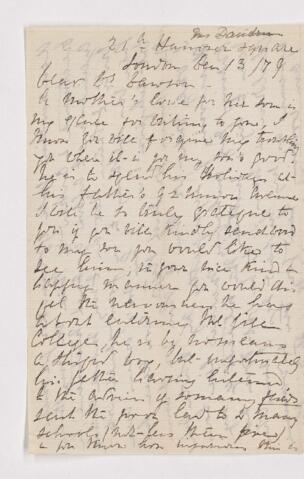 Mrs Dawson
21 A Hanover Square
London Dec 13/79
Dear Dr Dawson -
A Mother's love for her son is
my excuse for writing to you, I
know you will forgive my troubling
you when it is for my son's good,
He is to spend his Holidays at
his father's 92 Union Avenue
I will be so truly grateful to
you if you will kindly send word
to my son you would like to
see him, in your nice kind &
happy manner you would dis-
pel the nervousness he has
about entering McGill
College, he is by no means
a stupid boy, but unfortunately
his father having listened
to the advice of so many friends
sent the poor lad to so many
schools (not less than five)
& you know how injurious this is